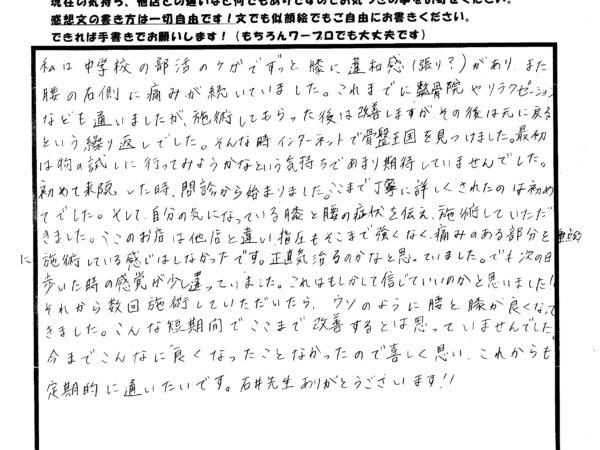 現在の気持ち、他店との違いなど何でもありですのでお気づきの事をお書きください。
感想文の書き方は一切自由です！文でも似顔絵でもご自由にお書きください。
できれば手書きでお願いします！（もちろんワープロでも大丈夫です）
私は中学校の部活のケガでずっと膝に違和感（張り？）があり、また
腰の右側に痛みが続いていました。これまでに整骨院やリラクゼーション
なども通いましたが、施術してもらった後は改善しますが、その後は元に戻る
という繰り返しでした。そんな時インターネットで骨盤王国を見つけました。最初
は物の試しに行ってみようかなという気持ちであまり期待していませんでした。
初めて来院した時、問診から始まりました。ここまで丁寧に詳しくされたのは初め
てでした。そして、自分の気になっている膝と腰の症状を伝え、施術していただ
きました。ここのお店は他店と違い、指圧もそこまで強くなく、痛みのある部分を重点的
に施術している感じはしなかったです。正直気治るのかなと思っていました。でも次の日
歩いた時の感覚が少し違っていました。これはもしかして信じていいのかと思いました！
それから数回施術していただいたら、ウソのように腰と膝が良くなって
きました。こんな短期間でここまで改善するとは思っていませんでした。
今までこんなに良くなったことなかったので喜しく思い、これからも
定期的に通いたいです。石井先生ありがとうございます！！